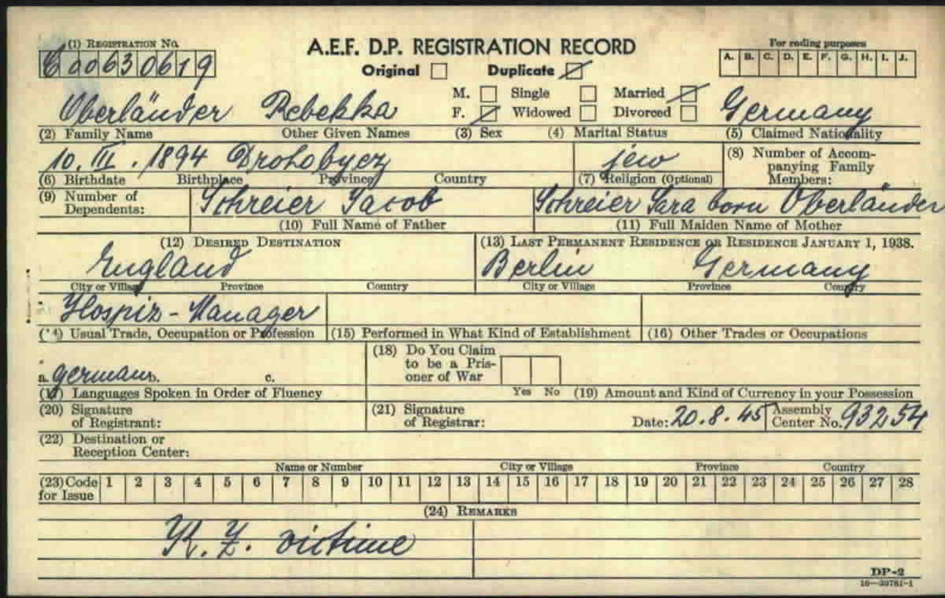 (1) REGISTRATION No.
A.E.F. D.P. REGISTRATION RECORD
For coding purposes
G00630619
Original Duplicate
A. B. C. D. E. F. G. H. I. J.
M. Single Married
Oberländer Rebekka F. Widowed Divorced Germany
(2) Family Name Other Given Names (3) Sex (4) Marital Status (5) Claimed Nationality
10. III. 1894 Drohobycz jew (8) Number of Accompanying Family Members:
(6) Birthdate Birthplace Province Country (7) Religion (Optional)
(9) Number of Dependents: Schreier Jacob Schreier Sara born Oberländer
(10) Full Name of Father (11) Full Maiden Name of Mother
(12) DESIRED DESTINATION (13) LAST PERMANENT RESIDENCE OR RESIDENCE JANUARY 1, 1938.
England Berlin Germany
City or Village Province Country City or Village Province Country
Hospiz-Manager
(14) Usual Trade, Occupation or Profession (15) Performed in What Kind of Establishment (16) Other Trades or Occupations
a. german b. c. (18) Do You Claim to be a Prisoner of War
(17) Languages Spoken in Order of Fluency Yes No (19) Amount and Kind of Currency in your Possession
(20) Signature of Registrant: (21) Signature of Registrar: Date: 20.8.45 Assembly Center No. 93254
(22) Destination or Reception Center:
Name or Number City or Village Province Country
(23) Code for Issue 1 2 3 4 5 6 7 8 9 10 11 12 13 14 15 16 17 18 19 20 21 22 23 24 25 26 27 28
(24) REMARKS
K.Z. victime
DP-2
16-39781-1